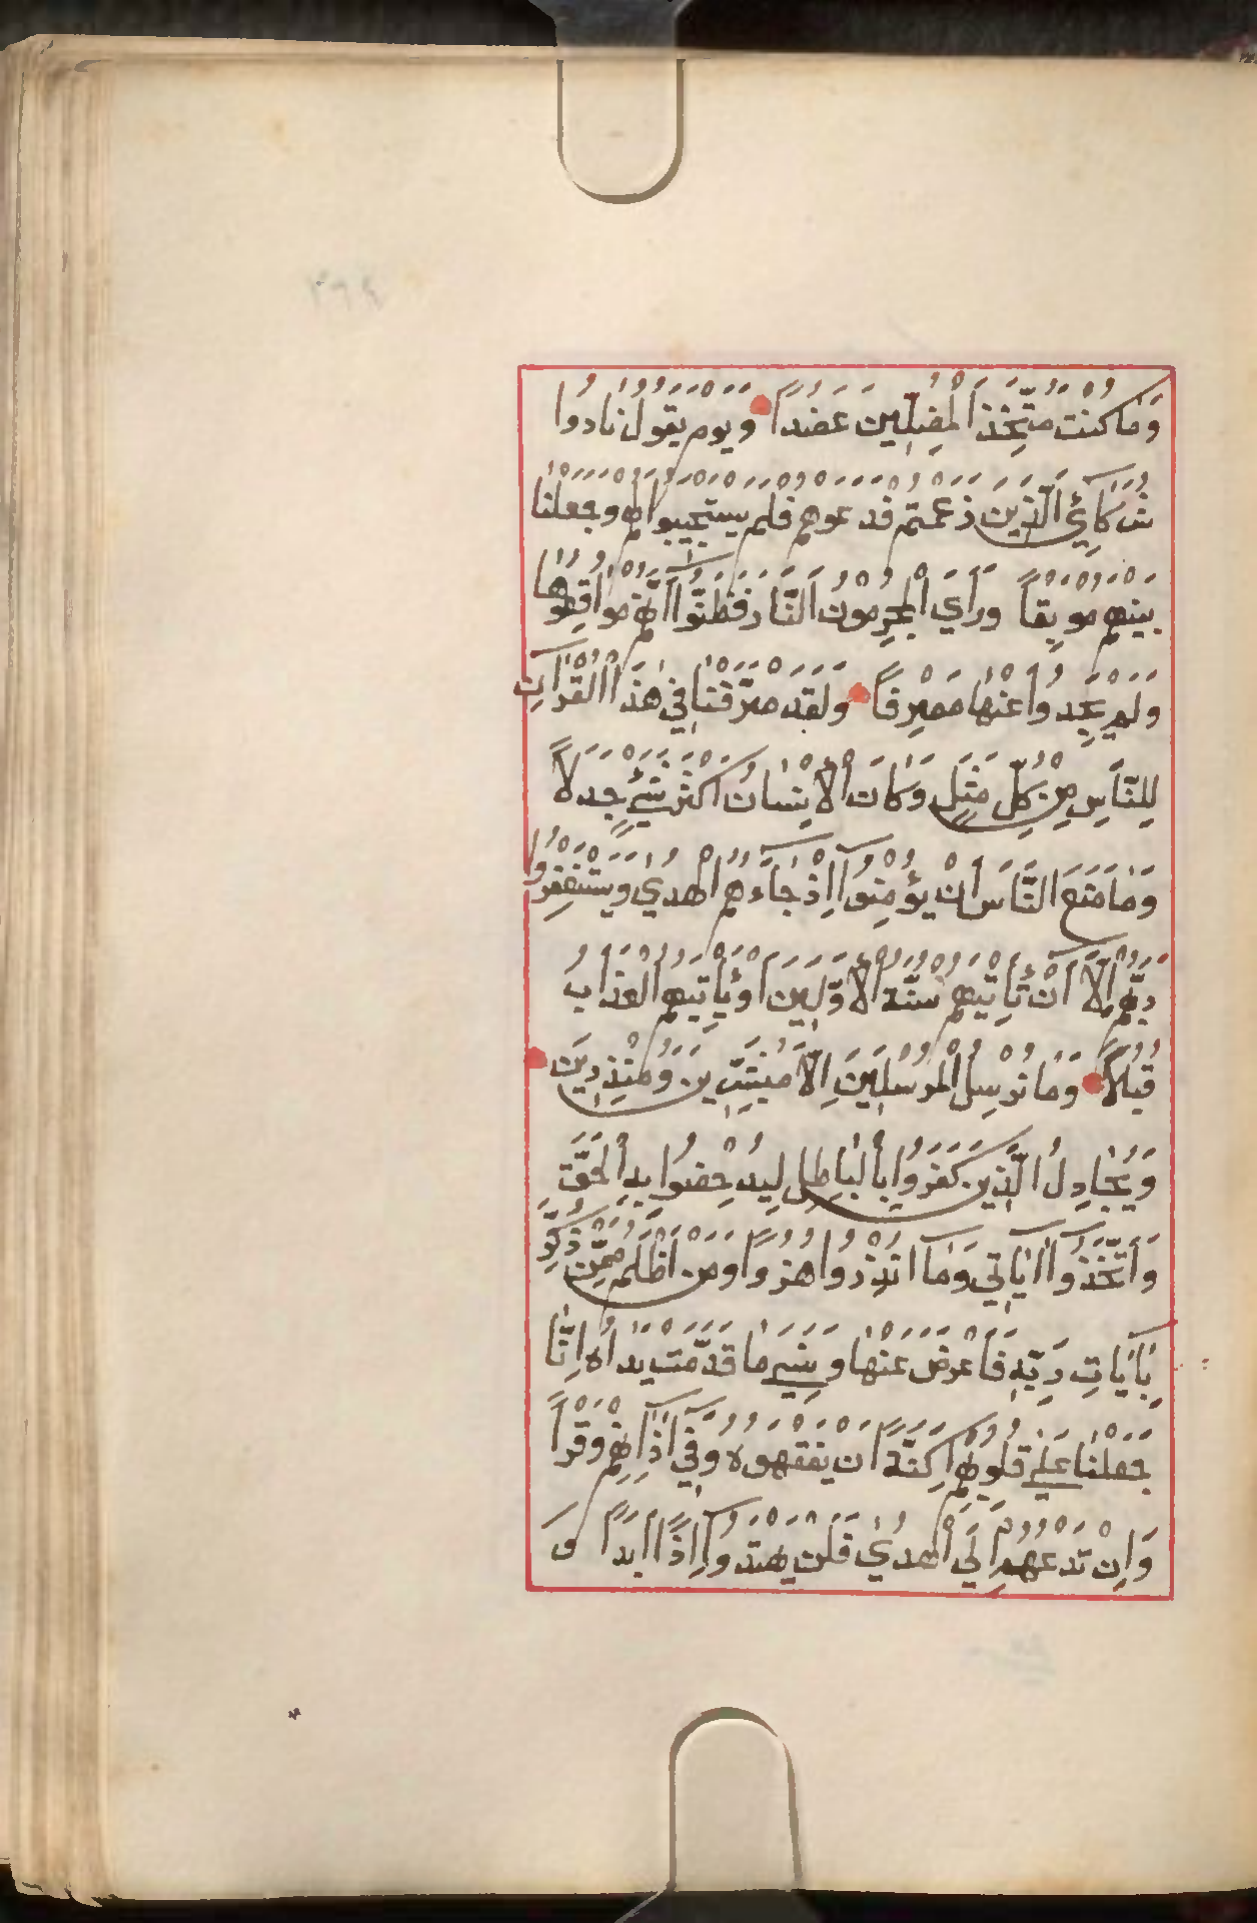 ٣٩٤
وَمَا كُنْتُ مُتَّخِذَ الْمُضِلِّينَ عَضُدًا وَيَوْمَ يَقُولُ نَادُوا
شُرَكَائِيَ الَّذِينَ زَعَمْتُمْ فَدَعَوْهُمْ فَلَمْ يَسْتَجِيبُوا لَهُمْ وَجَعَلْنَا
بَيْنَهُمْ مَوْبِقًا وَرَأَى الْمُجْرِمُونَ النَّارَ فَظَنُّوا أَنَّهُمْ مُوَاقِعُوهَا
وَلَمْ يَجِدُوا عَنْهَا مَصْرِفًا وَلَقَدْ صَرَّفْنَا فِي هٰذَا الْقُرْآنِ
لِلنَّاسِ مِنْ كُلِّ مَثَلٍ وَكَانَ الْإِنْسَانُ أَكْثَرَ شَيْءٍ جَدَلًا
وَمَا مَنَعَ النَّاسَ أَنْ يُؤْمِنُوا إِذْ جَاءَهُمُ الْهُدَى وَيَسْتَغْفِرُوا
رَبَّهُمْ إِلَّا أَنْ تَأْتِيَهُمْ سُنَّةُ الْأَوَّلِينَ أَوْ يَأْتِيَهُمُ الْعَذَابُ
قُبُلًا وَمَا نُرْسِلُ الْمُرْسَلِينَ إِلَّا مُبَشِّرِينَ وَمُنْذِرِينَ
وَيُجَادِلُ الَّذِينَ كَفَرُوا بِالْبَاطِلِ لِيُدْحِضُوا بِهِ الْحَقَّ
وَاتَّخَذُوا آيَاتِي وَمَا أُنْذِرُوا هُزُوًا وَمَنْ أَظْلَمُ مِمَّنْ ذُكِّرَ
بِآيَاتِ رَبِّهِ فَأَعْرَضَ عَنْهَا وَنَسِيَ مَا قَدَّمَتْ يَدَاهُ إِنَّا
جَعَلْنَا عَلَى قُلُوبِهِمْ أَكِنَّةً أَنْ يَفْقَهُوهُ وَفِي آذَانِهِمْ وَقْرًا
وَإِنْ تَدْعُهُمْ إِلَى الْهُدَى فَلَنْ يَهْتَدُوا إِذًا أَبَدًا وَ